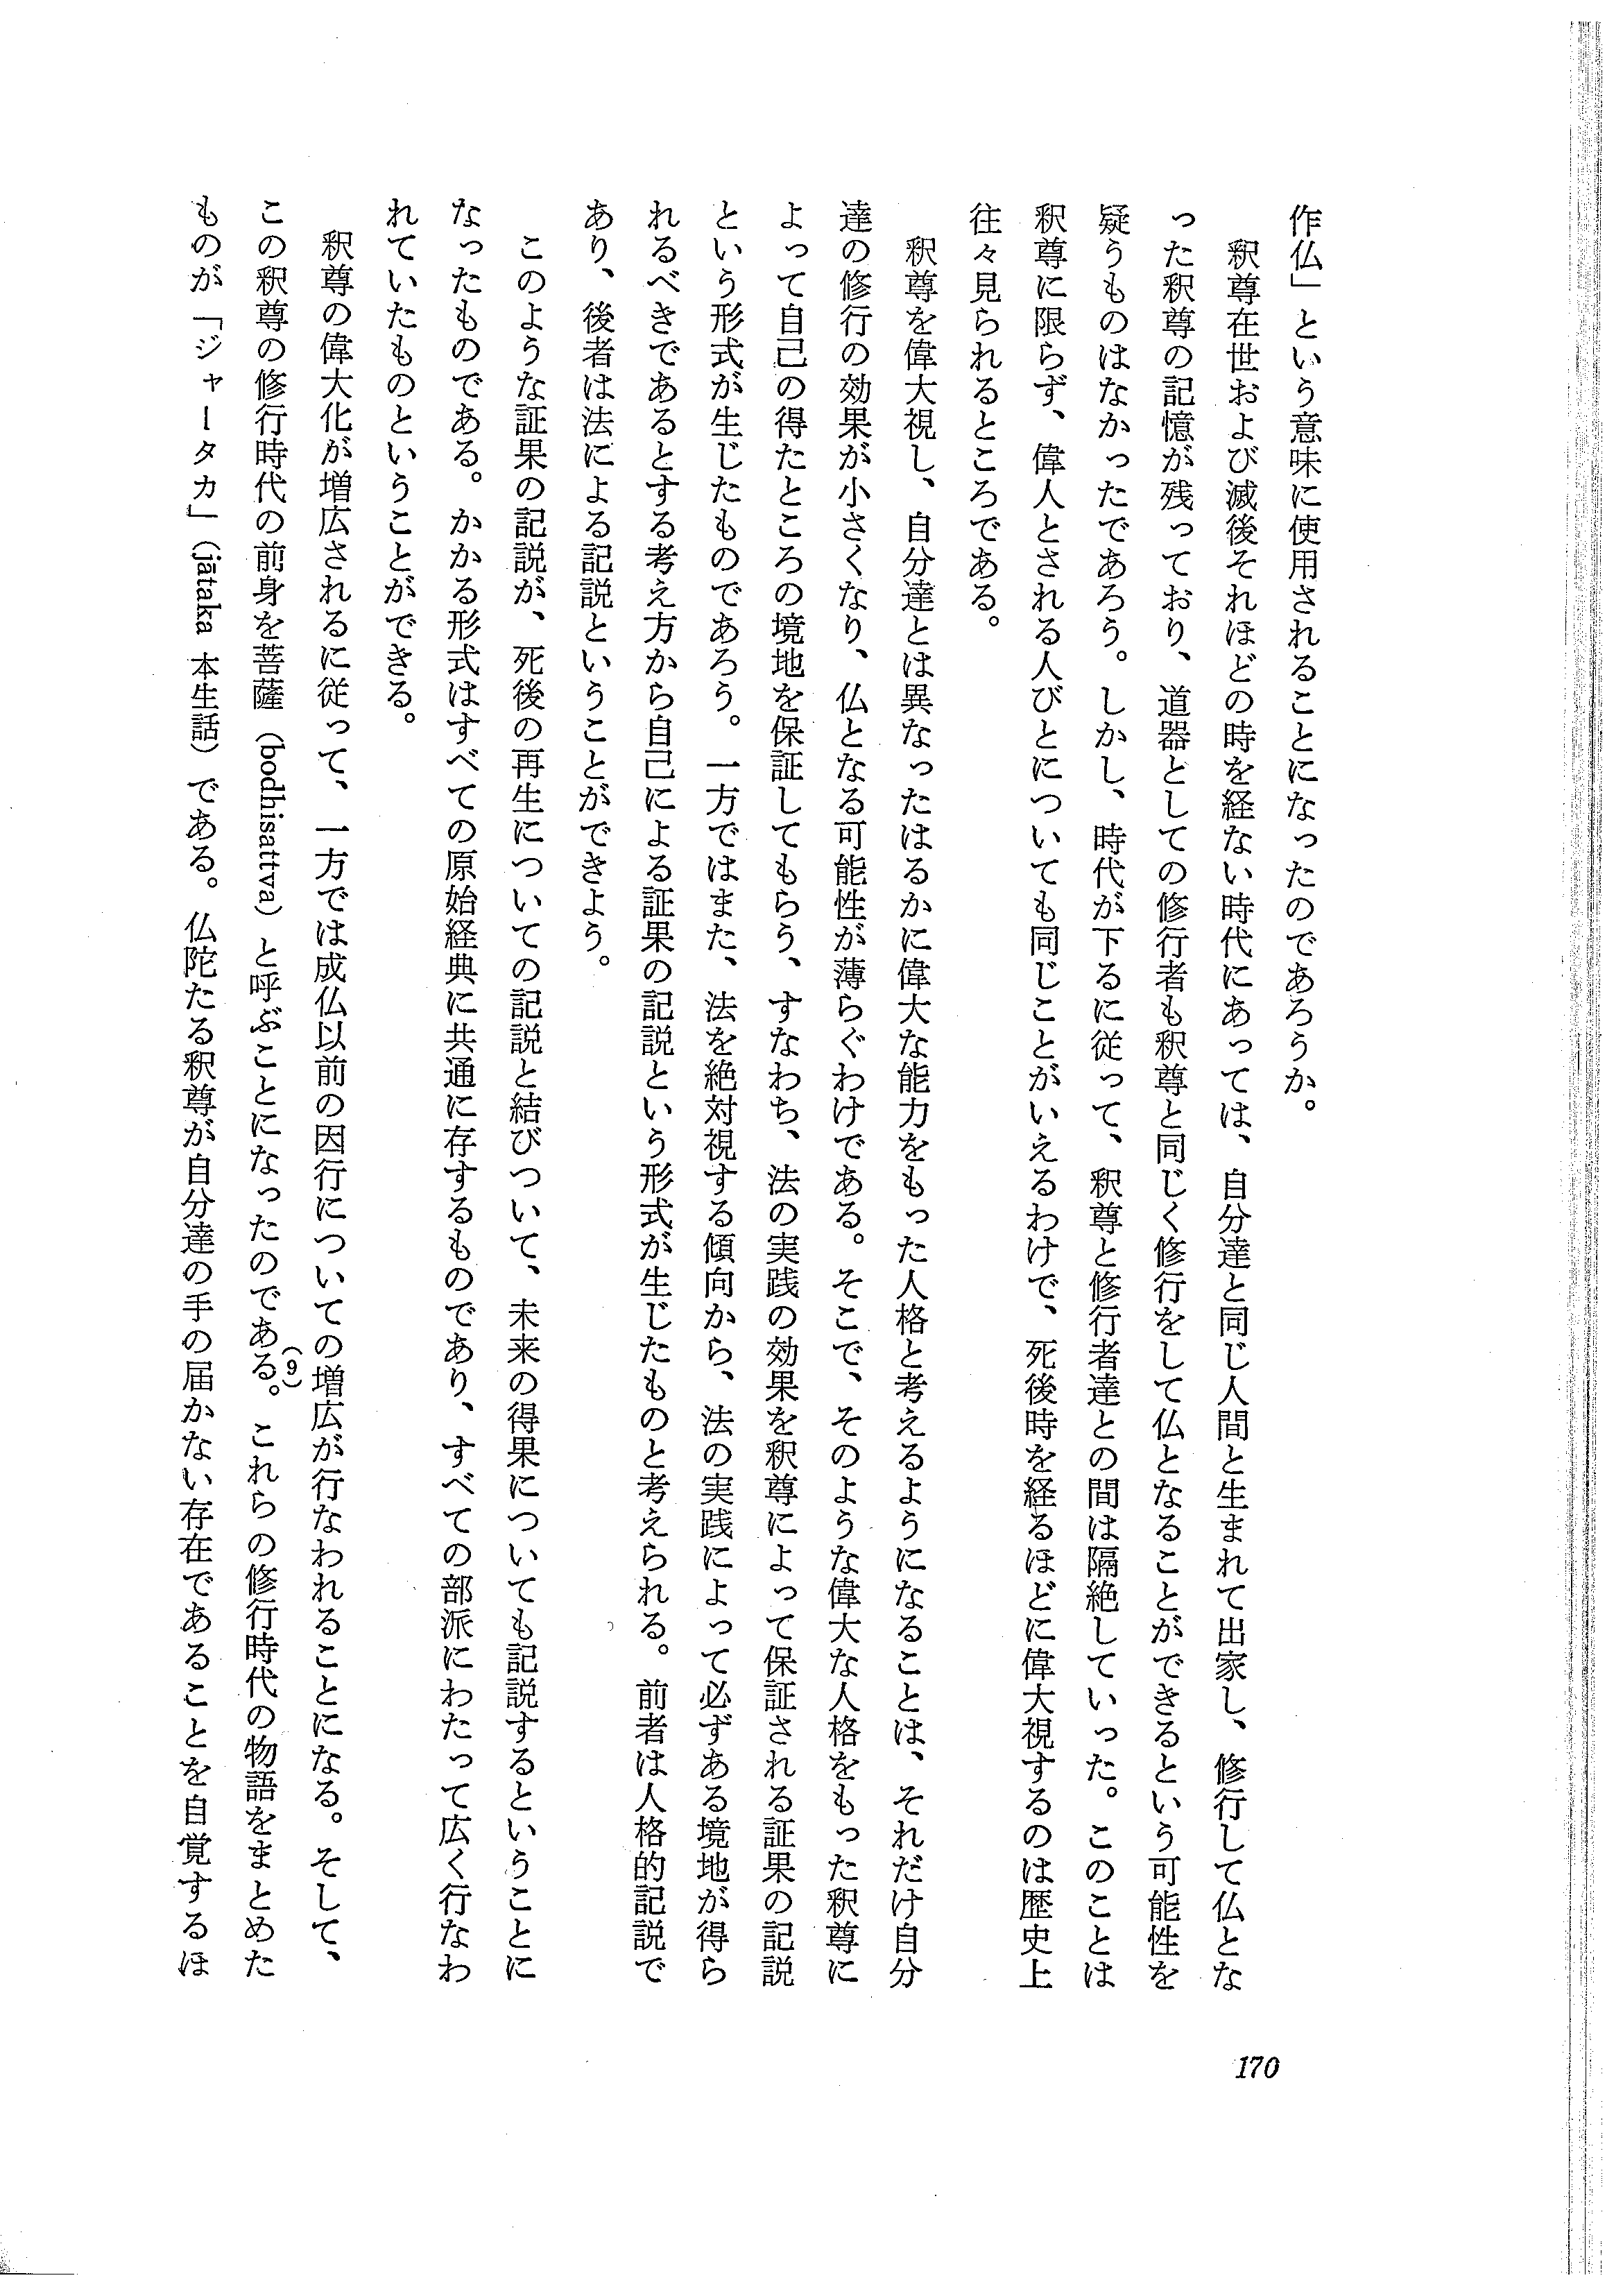 作仏」という意味に使用されることになったのであろうか。
　釈尊在世および滅後それほどの時を経ない時代にあっては、自分達と同じ人間と生まれて出家し、修行して仏とな
った釈尊の記憶が残っており、道器としての修行者も釈尊と同じく修行をして仏となることができるという可能性を
疑うものはなかったであろう。しかし、時代が下るに従って、釈尊と修行者達との間は隔絶していった。このことは
釈尊に限らず、偉人とされる人びとについても同じことがいえるわけで、死後時を経るほどに偉大視するのは歴史上
往々見られるところである。
　釈尊を偉大視し、自分達とは異なったはるかに偉大な能力をもった人格と考えるようになることは、それだけ自分
達の修行の効果が小さくなり、仏となる可能性が薄らぐわけである。そこで、そのような偉大な人格をもった釈尊に
よって自己の得たところの境地を保証してもらう、すなわち、法の実践の効果を釈尊によって保証される証果の記説
という形式が生じたものであろう。一方ではまた、法を絶対視する傾向から、法の実践によって必ずある境地が得ら
れるべきであるとする考え方から自己による証果の記説という形式が生じたものと考えられる。前者は人格的記説で
あり、後者は法による記説ということができよう。
　このような証果の記説が、死後の再生についての記説と結びついて、未来の得果についても記説するということに
なったものである。かかる形式はすべての原始経典に共通に存するものであり、すべての部派にわたって広く行なわ
れていたものということができる。
　釈尊の偉大化が増広されるに従って、一方では成仏以前の因行についての増広が行なわれることになる。そして、
この釈尊の修行時代の前身を菩薩（bodhisattva）と呼ぶことになったのである(9)。これらの修行時代の物語をまとめた
ものが「ジャータカ」（jātaka 本生話）である。仏陀たる釈尊が自分達の手の届かない存在であることを自覚するほ
170